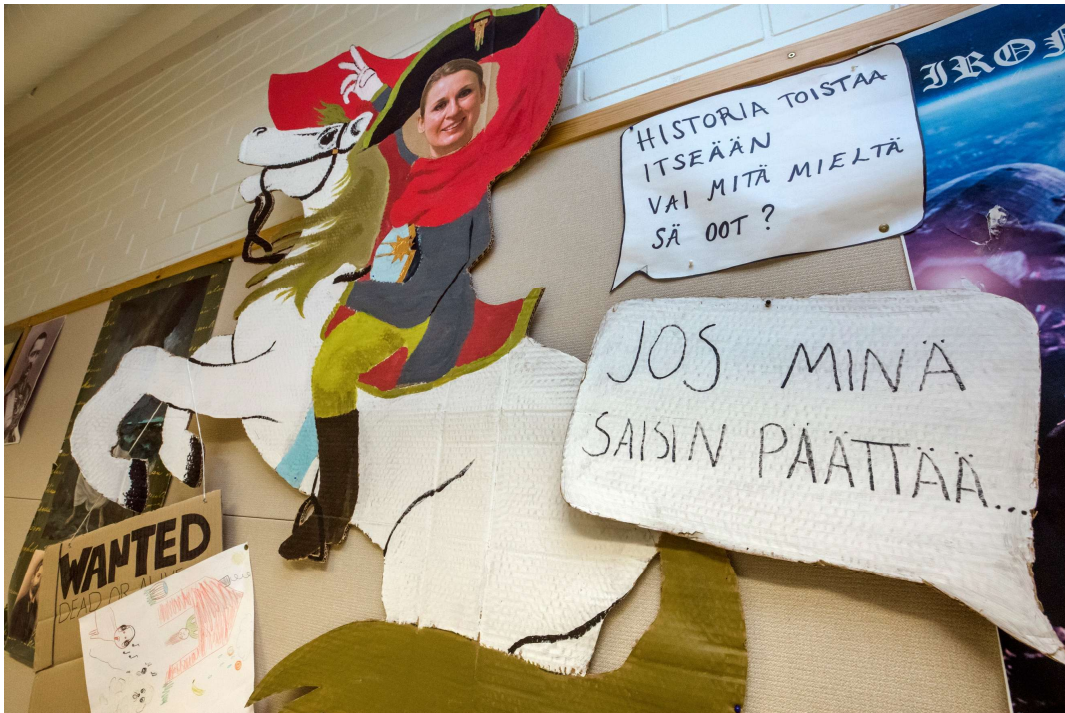 HISTORIA TOISTAA
ITSEÄÄN
VAI MITÄ MIELTÄ
SÄ OOT?
JOS MINÄ
SAISIN PÄÄTTÄÄ....
WANTED
DEAD OR ALIVE